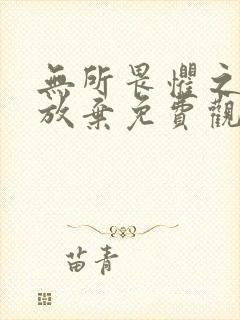 無所畏懼之
放棄免費觀
苗青